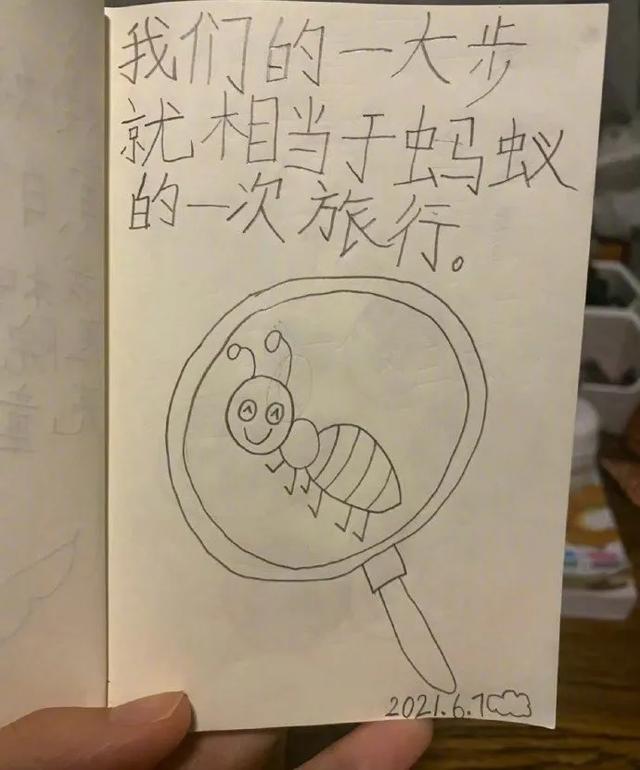 我们的一大步
就相当于蚂蚁
的一次旅行。
2021.6.1